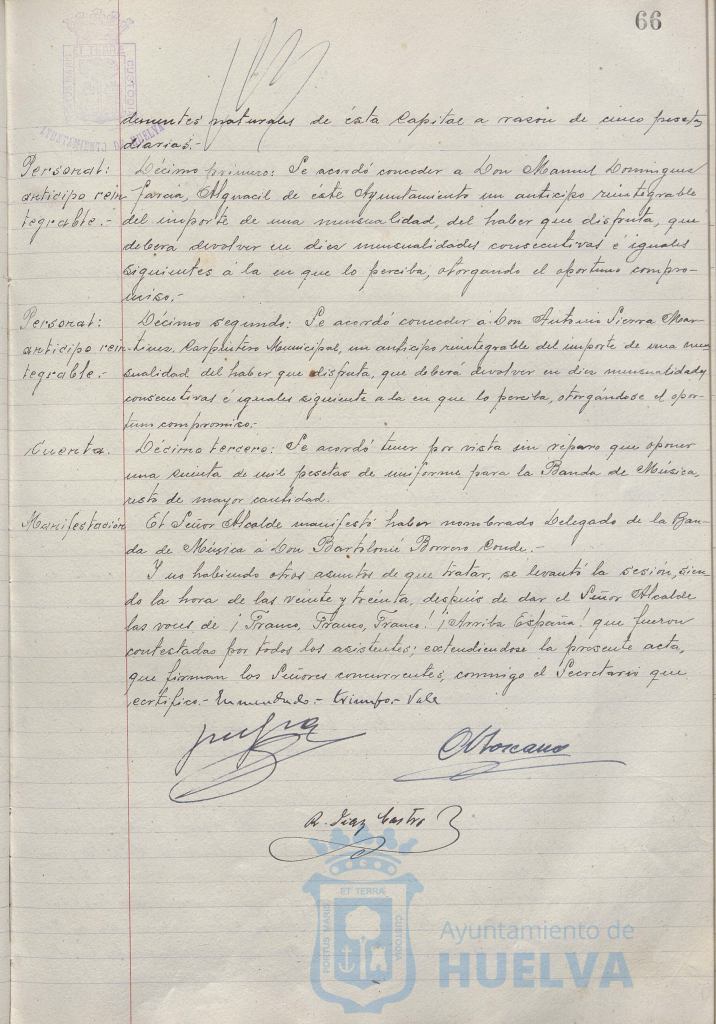 66
PORTUS MARIS ET TERRA CUSTODIA
AYUNTAMIENTO DE HUELVA
dementes naturales de ésta Capital a razón de cinco pesetas
diarias.-
Personal: Décimo primero: Se acordó conceder a Don Manuel Dominguez
anticipo rein García, Alguacil de éste Ayuntamiento un anticipo reintegrable
tegrable.- del importe de una mensualidad, del haber que disfruta, que
deberá devolver en diez mensualidades consecutivas é iguales
siguientes á la en que lo perciba, otorgando el oportuno compro-
miso.-
Personal: Décimo segundo: Se acordó conceder a Don Antonio Sierra Mar-
anticipo rein- tinez, Carpintero Municipal, un anticipo reintegrable del importe de una men
tegrable.- sualidad del haber que disfruta, que deberá devolver en diez mensualidades
consecutivas é iguales siguiente a la en que lo perciba, otorgándose el opor-
tuno compromiso.-
Cuenta. Décimo tercero: Se acordó tener por vista sin reparo que oponer
una cuenta de mil pesetas de uniforme para la Banda de Música,
resto de mayor cantidad.
Manifestación El Señor Alcalde manifestó haber nombrado Delegado de la Ban-
da de Música á Don Bartolomé Borrero Conde.-
Y no habiendo otros asuntos de que tratar, se levantó la sesión, sien-
do la hora de las veinte y treinta, después de dar el Señor Alcalde
las voces de ¡Franco, Franco, Franco! ¡Arriba España! que fueron
contestadas por todos los asistentes; extendiéndose la presente acta,
que firman los Señores concurrentes, conmigo el Secretario que
certifico.- Enmendado.- triunfo- Vale
R. Diaz Castro
PORTUS MARIS ET TERRA CUSTODIA
Ayuntamiento de
HUELVA